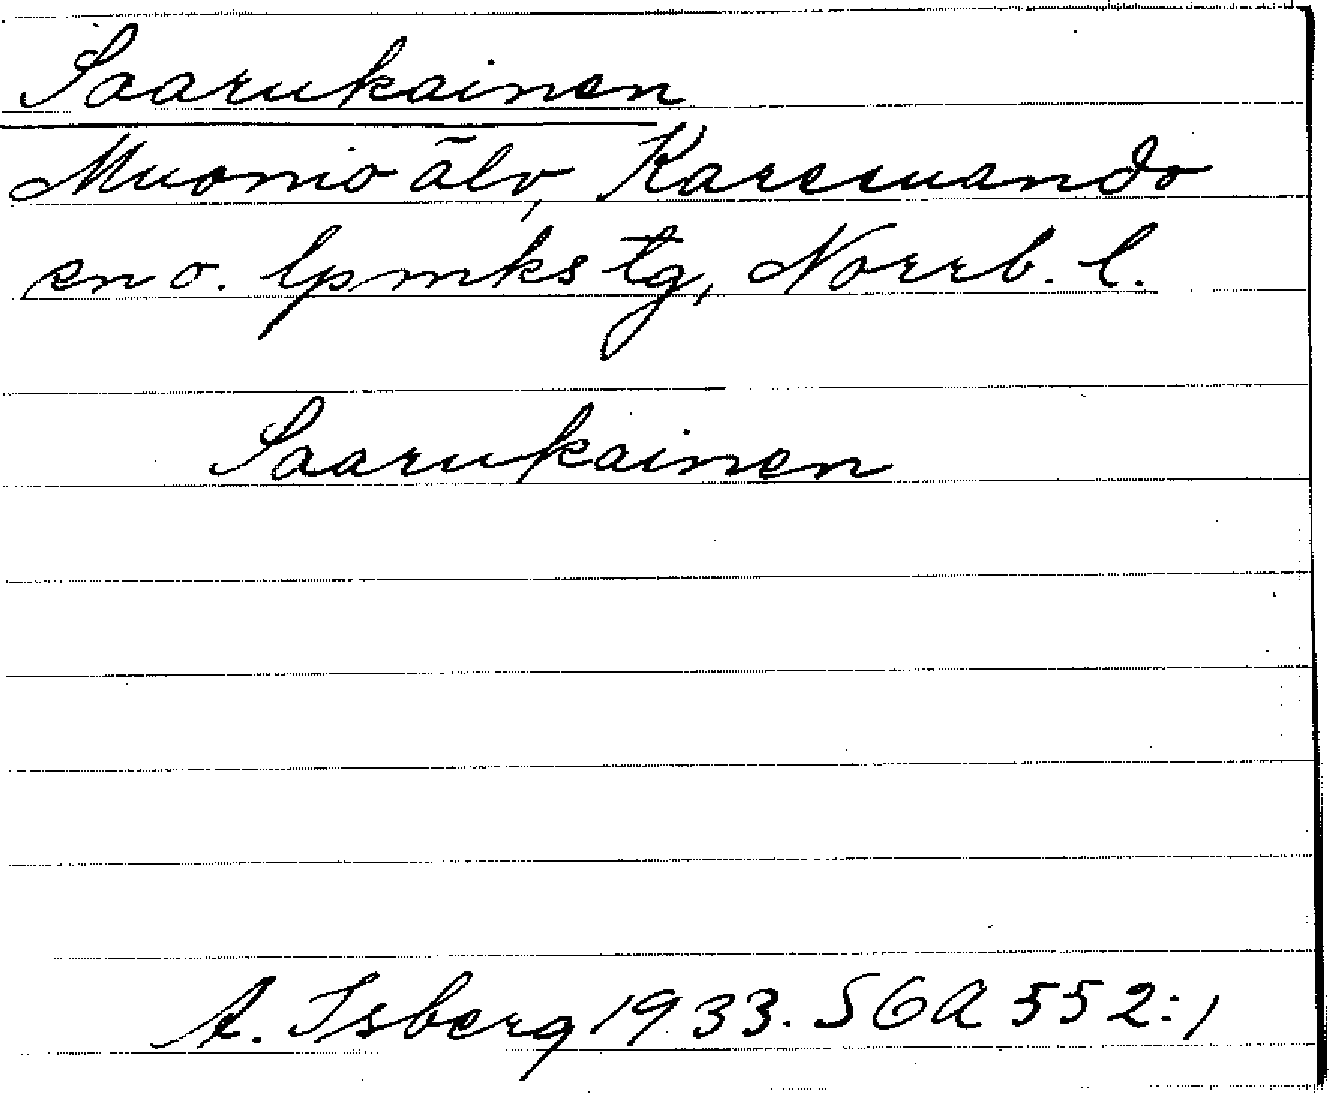 Saarukainen
Muonio älv, Karesuando
sn o. lpmks tg, Norrb. l.
Saarukainen
A. Isberg 1933. SOA 552:1